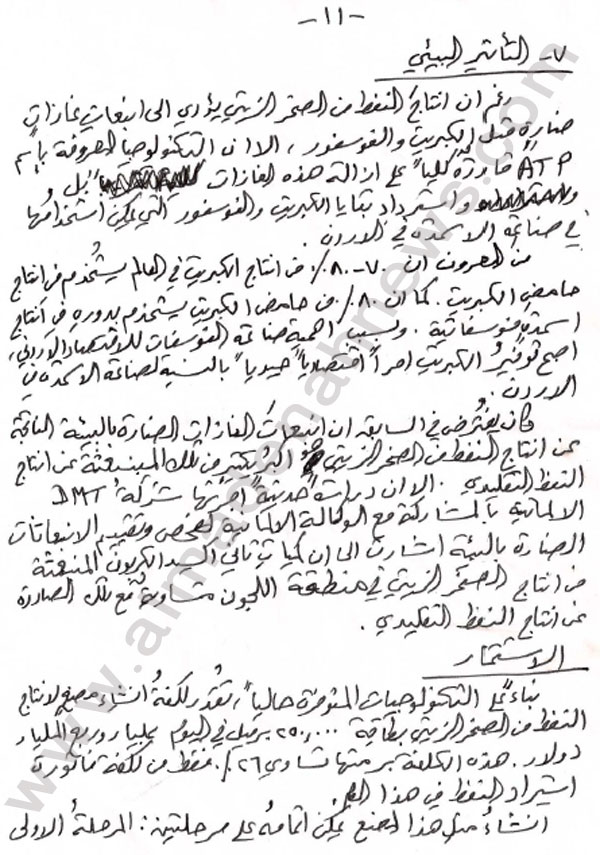 -١١-
٧- التأثير البيئي
رغم ان انتاج النفط من الصخر الزيتي يؤدي الى انبعاث غازات
ضارة مثل الكبريت والفوسفور ، الا ان التكنولوجيا المعروفة بإسم
ATP قادرة كلياً على ازالة هذه الغازات بل و
واسترداد بقايا الكبريت والفوسفور التي يمكن استخدامها
في صناعة الاسمدة في الاردن .
من المعروف ان ٧٠-٨٠٪ من انتاج الكبريت في العالم يستخدم في انتاج
حامض الكبريت . كما ان ٨٠٪ من حامض الكبريت يستخدم بدوره في انتاج
اسمدة فوسفاتية . وبسبب اهمية صناعة الفوسفات للاقتصاد الاردني،
اصبح توفير الكبريت امراً اقتصادياً حيوياً بالنسبة لصناعة الاسمدة في
الاردن .
كان يفترض في السابق ان انبعاث الغازات الضارة بالبيئة الناتجة
عن انتاج النفط من الصخر الزيتي اكبر بكثير من تلك المنبعثة عن انتاج
النفط التقليدي . الا ان دراسة حديثة اجرتها شركة DMT
الالمانية بالمشاركة مع الوكالة الالمانية لفحص وتقييم الانبعاثات
الضارة بالبيئة اشارت الى ان كميات ثاني اكسيد الكربون المنبعثة
من انتاج الصخر الزيتي في منطقة اللجون مساوية مع تلك الصادرة
عن انتاج النفط التقليدي .
الاستثمار
بناءً على التكنولوجيات المتوفرة حالياً ، تقدر كلفة انشاء مصنع لانتاج
النفط من الصخر الزيتي بطاقة ٢٥٠,٠٠٠ برميل في اليوم بمليار وربع المليار
دولار. هذه الكلفة برمتها تساوي ٢٦٪ فقط من كلفة فاتورة
استيراد النفط في هذا
انشاء مثل هذا المصنع يمكن اتمامه على مرحلتين : المرحلة الاولى
www.almadenahnews.com